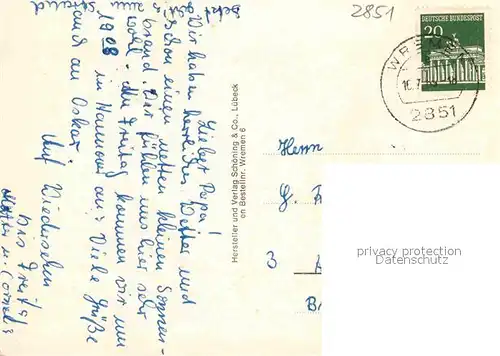 2851
DEUTSCHE BUNDESPOST
20
WREMEN
2851
Lieber Papa!
Wir haben herrliches Wetter und
schon einen netten kleinen Sonnen-
brand. Wir fühlen uns hier sehr
wohl. Am Freitag kommen wir um
19 08 in Hannover an. Viele Grüße
und an Oskar.
Auf Wiedersehn
bis Freitag
Hersteller und Verlag Schöning & Co., Lübeck
en Bestellnr. Wremen 6
Herrn
G.
3
privacy protection
Datenschutz